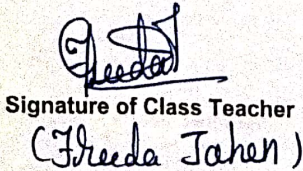 Freeda J
Signature of Class Teacher
(Freeda Jahen)